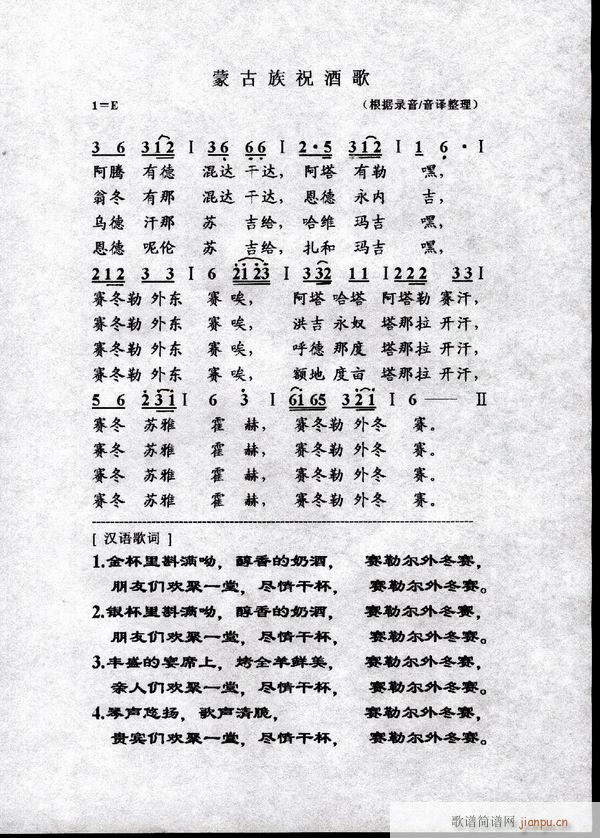 蒙古族祝酒歌
1=E （根据录音/音译整理）
3 6 312 | 36 66 | 2·5 312 | 1 6· |
阿腾 有德 混达 干达， 阿塔 有勒 嘿，
翁冬 有那 混达 干达， 恩德 永内 吉，
乌德 汗那 苏 吉给， 哈维 玛吉 嘿，
恩德 呢伦 苏 吉给， 扎和 玛吉 嘿，
212 3 3 | 6 2123 | 332 11 | 222 33 |
赛冬勒 外东 赛 唉， 阿塔 哈塔 阿塔勒 赛汗，
赛冬勒 外东 赛 唉， 洪吉 永奴 塔那拉 开汗，
赛冬勒 外东 赛 唉， 呼德 那度 塔那拉 开汗，
赛冬勒 外东 赛 唉， 额地 度亩 塔那拉 开汗，
5 6 231 | 6 3 | 6165 321 | 6 —— ‖
赛冬 苏雅 霍 赫， 赛冬勒 外冬 赛。
赛冬 苏雅 霍 赫， 赛冬勒 外冬 赛。
赛冬 苏雅 霍 赫， 赛冬勒 外冬 赛。
赛冬 苏雅 霍 赫， 赛冬勒 外冬 赛。
[ 汉语歌词 ]
1.金杯里斟满呦，醇香的奶酒， 赛勒尔外冬赛，
朋友们欢聚一堂，尽情干杯， 赛勒尔外冬赛。
2.银杯里斟满呦，醇香的奶酒， 赛勒尔外冬赛，
朋友们欢聚一堂，尽情干杯， 赛勒尔外冬赛。
3.丰盛的宴席上，烤全羊鲜美， 赛勒尔外冬赛，
亲人们欢聚一堂，尽情干杯， 赛勒尔外冬赛。
4.琴声悠扬，歌声清脆， 赛勒尔外冬赛，
贵宾们欢聚一堂，尽情干杯， 赛勒尔外冬赛。
歌谱简谱网
jianpu.cn